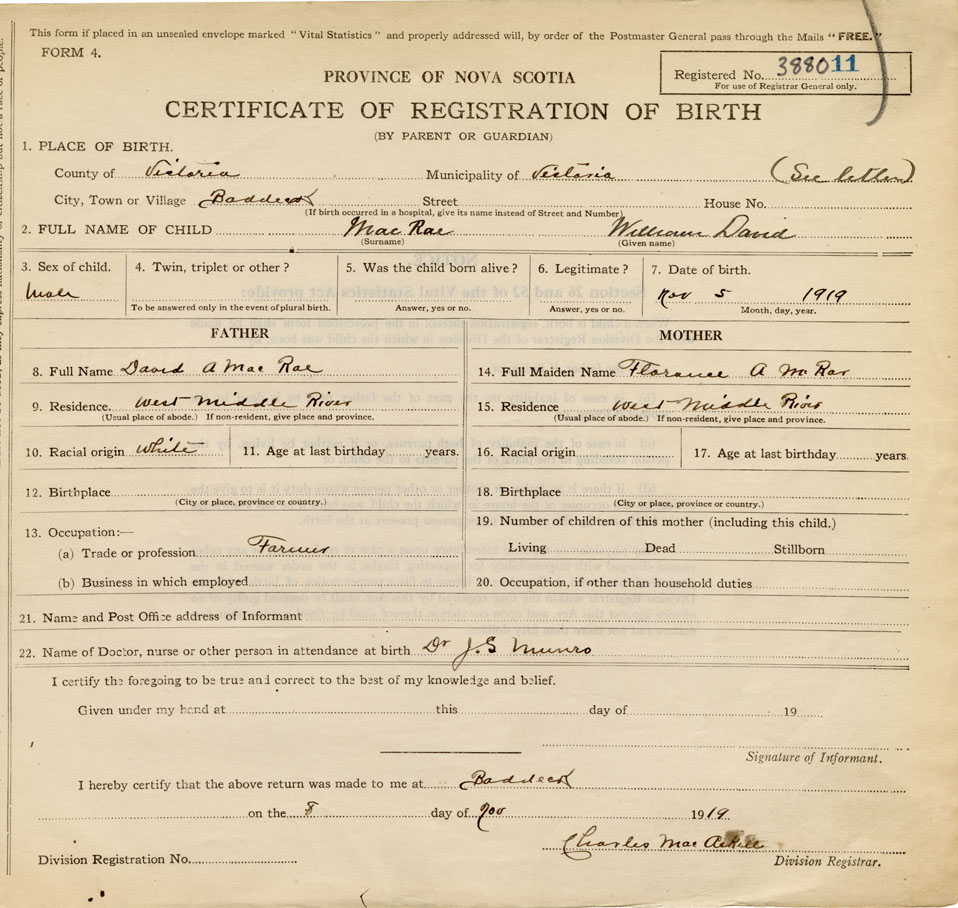 This form if placed in an unsealed envelope marked "Vital Statistics" and properly addressed will, by order of the Postmaster General pass through the Mails "FREE."
FORM 4.
Registered No. 38801 1
For use of Registrar General only.
PROVINCE OF NOVA SCOTIA
CERTIFICATE OF REGISTRATION OF BIRTH
(BY PARENT OR GUARDIAN)
1. PLACE OF BIRTH.
County of Victoria Municipality of Victoria (See letter)
City, Town or Village Baddeck Street House No.
(If birth occurred in a hospital, give its name instead of Street and Number)
2. FULL NAME OF CHILD Mac Rae William David
(Surname) (Given name)
3. Sex of child. 4. Twin, triplet or other? 5. Was the child born alive? 6. Legitimate? 7. Date of birth.
Male Nov 5 1919
To be answered only in the event of plural birth. Answer, yes or no. Answer, yes or no. Month, day, year.
FATHER MOTHER
8. Full Name David A Mac Rae 14. Full Maiden Name Florence A Mc Rae
9. Residence West Middle River 15. Residence West Middle River
(Usual place of abode.) If non-resident, give place and province. (Usual place of abode.) If non-resident, give place and province.
10. Racial origin White 11. Age at last birthday years. 16. Racial origin 17. Age at last birthday years.
12. Birthplace 18. Birthplace
(City or place, province or country.) (City or place, province or country.)
13. Occupation:— 19. Number of children of this mother (including this child.)
(a) Trade or profession Farmer Living Dead Stillborn
(b) Business in which employed 20. Occupation, if other than household duties
21. Name and Post Office address of Informant
22. Name of Doctor, nurse or other person in attendance at birth Dr J. G Munro
I certify the foregoing to be true and correct to the best of my knowledge and belief.
Given under my hand at this day of 19
Signature of Informant.
I hereby certify that the above return was made to me at Baddeck
on the 8 day of Nov 1919.
Charles Mac Askill
Division Registration No. Division Registrar.